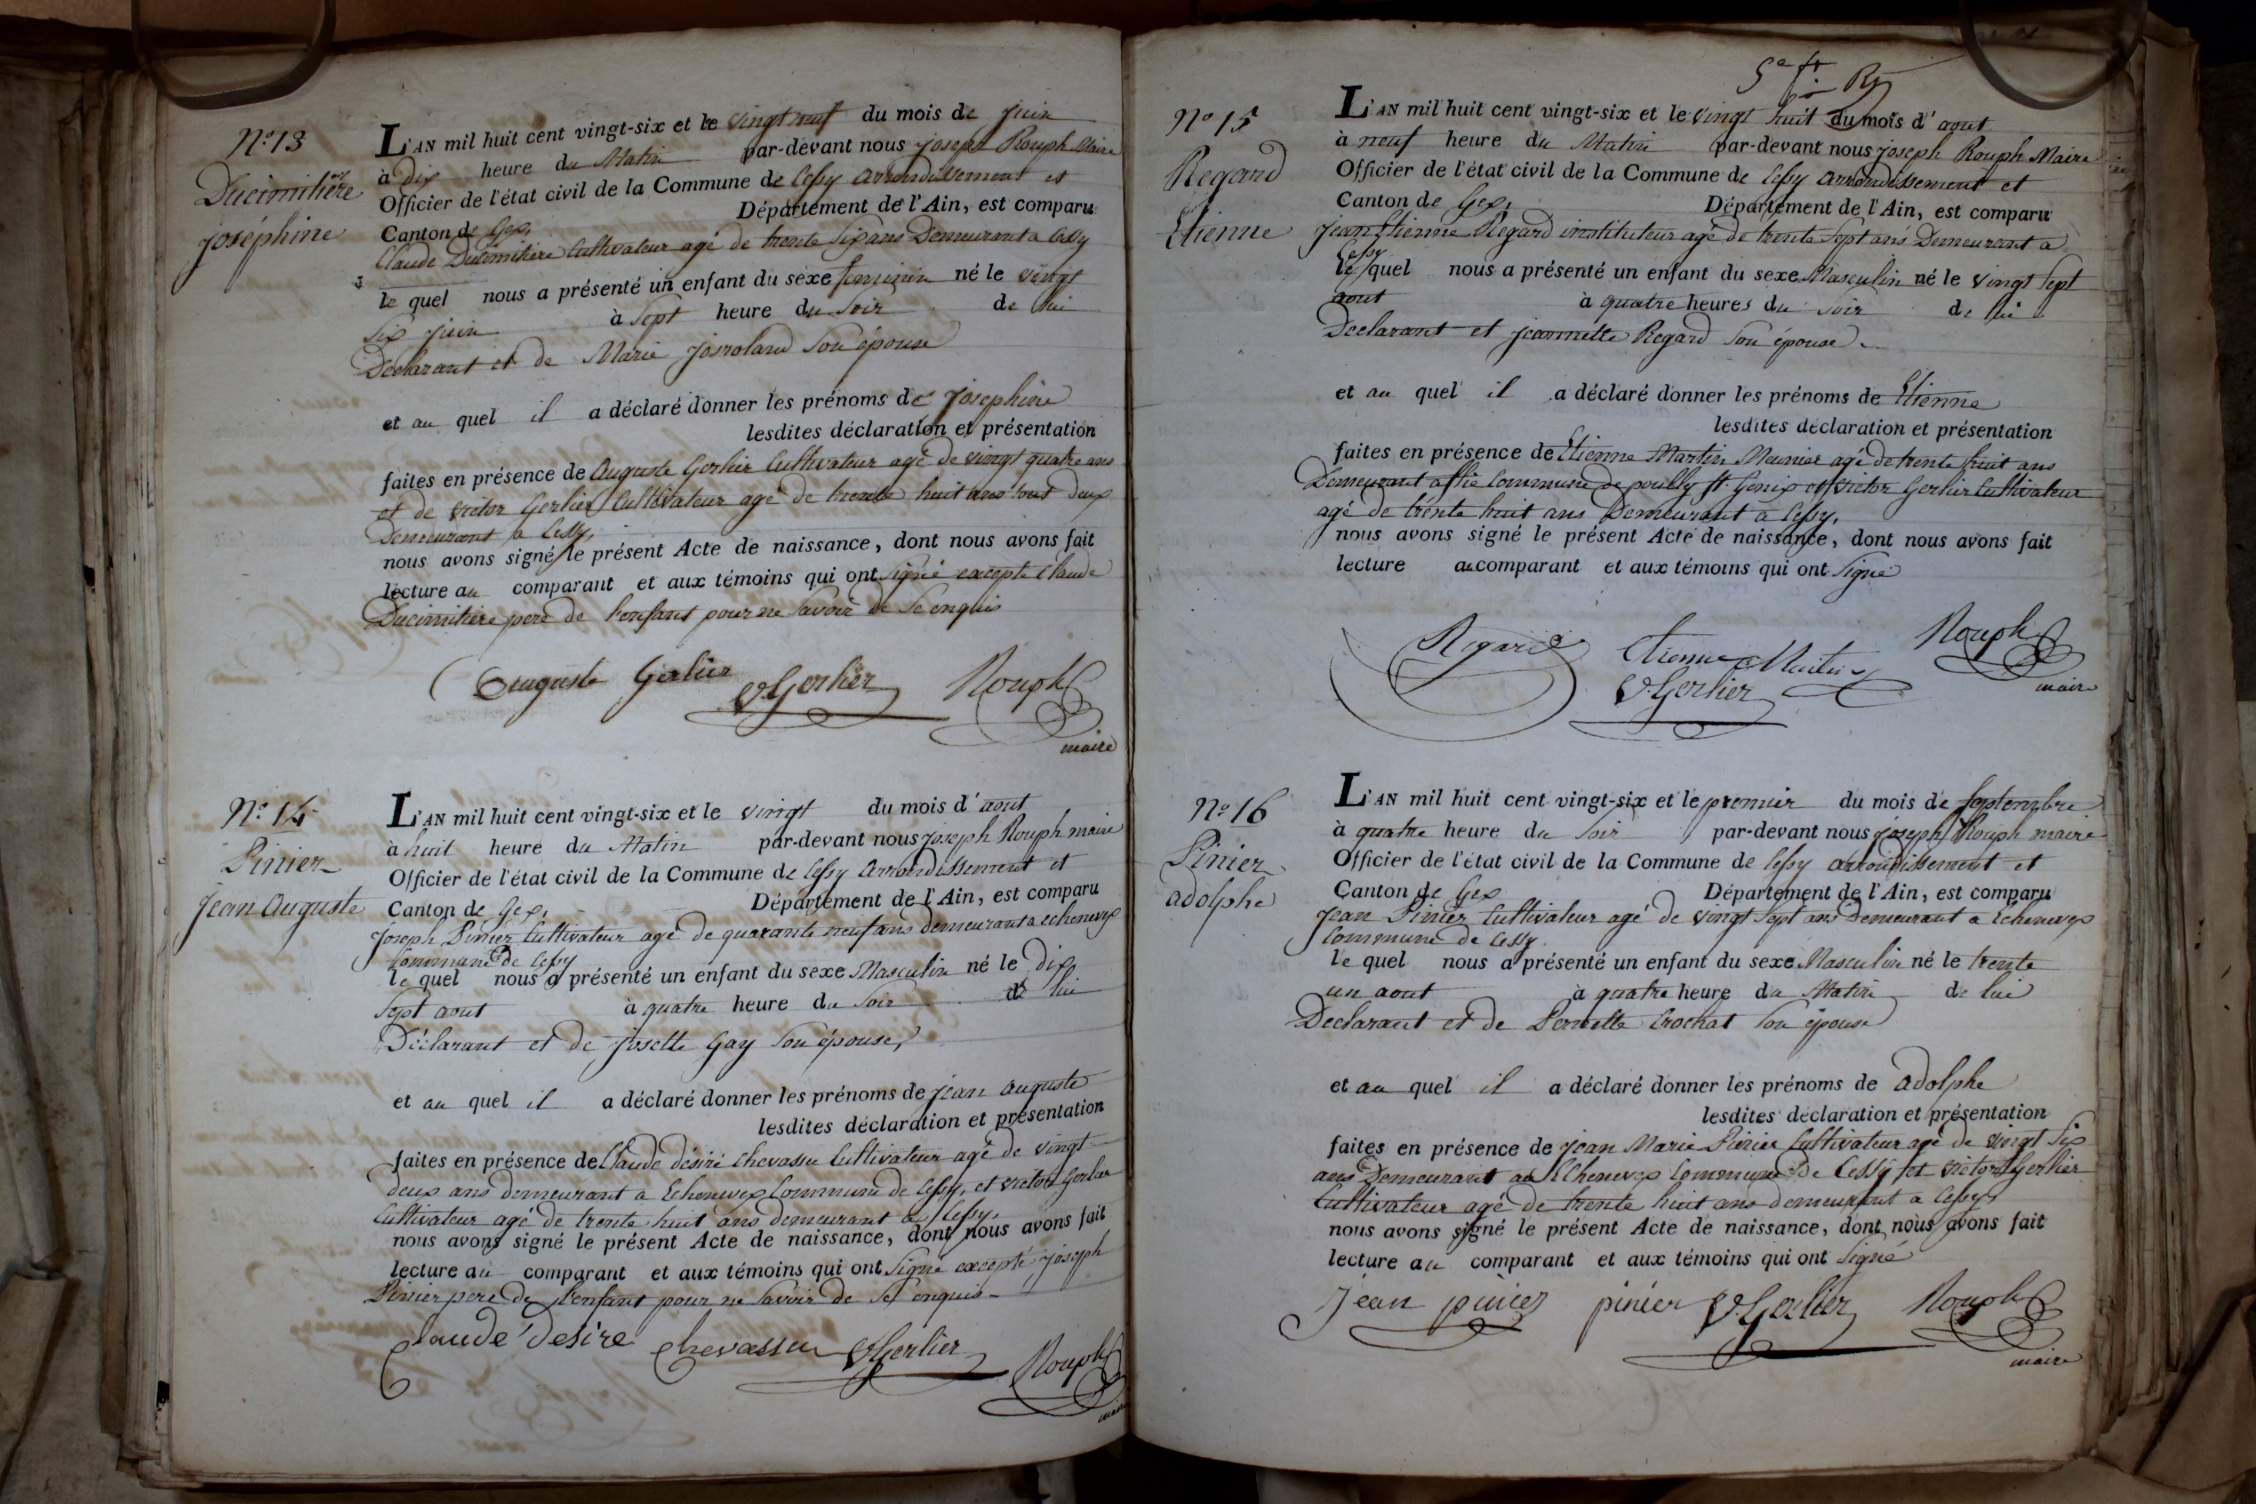 N.o 13
Ducimitière
joséphine
L'AN mil huit cent vingt-six et le vingt neuf du mois de juin
à dix heure du Matin par-devant nous joseph Rouph Maire
Officier de l'état civil de la Commune de Cessy arrondissement et
Canton de Gex, Département de l'Ain, est comparu
Claude Ducimitière Cultivateur agé de trente six ans Demeurant a Cessy
le quel nous a présenté un enfant du sexe feminin né le vingt
six juin à Sept heure du Soir de lui
Declarant et de Marie Son épouse
et au quel il a déclaré donner les prénoms de josephine
lesdites déclaration et présentation
faites en présence de Auguste Gerlier Cultivateur agé de vingt quatre ans
et de victor Gerlier Cultivateur agé de trente huit ans tout deux
Demeurant a Cessy,
nous avons signé le présent Acte de naissance, dont nous avons fait
lecture au comparant et aux témoins qui ont signé excepté Claude
Ducimitière pere de l'enfant pour ne Savoir de Se enquis
Auguste Gerlier V. Gerlier Rouph
maire
N.o 14
Pinier
jean Auguste
L'AN mil huit cent vingt-six et le vingt du mois d'aout
à huit heure du Matin par-devant nous joseph Rouph maire
Officier de l'état civil de la Commune de Cessy arrondissement et
Canton de Gex, Département de l'Ain, est comparu
Joseph Pinier Cultivateur agé de quarante neuf ans demeurant a echenevex
Commune de Cessy
le quel nous a présenté un enfant du sexe Masculin né le dix
Sept aout à quatre heure du Soir de lui
Déclarant et de josette Gay Son épouse,
et au quel il a déclaré donner les prénoms de jean auguste
lesdites déclaration et présentation
faites en présence de Claude désiré Chevassu Cultivateur agé de vingt
deux ans demeurant a Echenevex Commune de Cessy, et victor Gerlier
Cultivateur agé de trente huit ans demeurant a Cessy,
nous avons signé le présent Acte de naissance, dont nous avons fait
lecture au comparant et aux témoins qui ont Signé excepté joseph
Pinier pere de l'enfant pour ne Savoir de Se enquis
Claude desire Chevassu V. Gerlier Rouph
maire
N.o 15
Regard
Etienne
L'AN mil huit cent vingt-six et le vingt huit du mois d'aout
à neuf heure du Matin par-devant nous joseph Rouph Maire
Officier de l'état civil de la Commune de Cessy arrondissement et
Canton de Gex, Département de l'Ain, est comparu
jean Etienne Regard instituteur agé de trente Sept ans Demeurant a
Cessy
le quel nous a présenté un enfant du sexe Masculin né le vingt Sept
aout à quatre heures du Soir de lui
Declarant et jeannette Regard Son épouse
et au quel il a déclaré donner les prénoms de Etienne
lesdites déclaration et présentation
faites en présence de Etienne Martin Meunier agé de trente huit ans
Demeurant Commune de pouilly St. Genix et victor Gerlier Cultivateur
agé de trente huit ans Demeurant a Cessy,
nous avons signé le présent Acte de naissance, dont nous avons fait
lecture au comparant et aux témoins qui ont Signé
Regard Etienne Martin Rouph
V. Gerlier maire
N.o 16
Pinier
adolphe
L'AN mil huit cent vingt-six et le premier du mois de Septembre
à quatre heure du Soir par-devant nous joseph Rouph maire
Officier de l'état civil de la Commune de Cessy arrondissement et
Canton de Gex Département de l'Ain, est comparu
jean Pinier Cultivateur agé de vingt Sept ans demeurant a Echenevex
Commune de Cessy
le quel nous a présenté un enfant du sexe Masculin né le trente
un aout à quatre heure du Matin de lui
Declarant et de Pernette Crochat Son épouse
et au quel il a déclaré donner les prénoms de adolphe
lesdites déclaration et présentation
faites en présence de jean Marie Pinier Cultivateur agé de vingt Six
ans Demeurant a Echenevex Commune de Cessy et victor Gerlier
Cultivateur agé de trente huit ans demeurant a Cessy
nous avons signé le présent Acte de naissance, dont nous avons fait
lecture au comparant et aux témoins qui ont Signé
jean pinier pinier V. Gerlier Rouph
maire